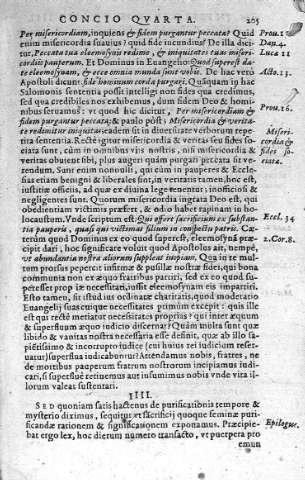 CONCIO QVARTA. 205
Per misericordiam, inquiens & fidem purgantur peccata? Quid Prou.15
enim misericordia suauius? quid fide iucundius? De illa dici- Dan.4.
tur, Peccata tua eleemosynis redime, & iniquitates tuas miseri- Luca 11
cordiis pauperum. Et Dominus in Euangelio Quod superest da-
te eleemosynam, & ecce omnia munda sunt vobis. De hac verò Acto.15.
Apostoli dicunt: fide hominum corda purgari. Quamquam in hac
Salomonis sententia possit intelligi non fides qua credimus,
sed qua credibiles nos exhibemus, dum fidem Deo & homi-
nibus seruamus: vt quod hic dicitur, Per misericordiam & Prou.16.
fidem purgantur peccata; & paulò post; Misericordia & verita-
te redimitur iniquitas: eadem sit in diuersitate verborum repeti-
ta sententia. Rectè igitur misericordia & veritas seu fides so- Miseri-
ciata sunt, cùm in omnibus viis nostris, ac potissimùm in cordia &
his operibus pietatis, plus augeri quàm purgari peccata sit ve- fides so-
rendum. Sunt enim nonnulli, qui cum in pauperes & Eccle- ciata.
sias etiam benigni & liberales sint, in veritatis tamen, hoc est,
iustitiæ officiis, ad quæ ex diuina lege tenentur, inofficiosi &
negligentes sunt. Quorum misericordia ingrata Deo est, qui
obedientiam victimis præfert, & odio habet rapinam in ho-
locaustum. Vnde scriptum est: Qui offert sacrificium ex substan- Eccl. 34
tia pauperis, quasi qui victimat filium in conspectu patris. Cæ-
terùm quod Dominus ex eo quod superest, eleemosynā præ-
cipit dari; hoc significare voluit quod Apostolus ait, nempè, 2.Cor.8.
vt abundantia nostra aliorum suppleat inopiam. Qua in re mul-
tum profectò peperit: infirmæ & pusillæ nostræ fidei, qui bona
communia non ex æquo fratribus partiri, sed ex eo quod su-
pesset pro ipsa necessitate, iussit eleemosynam eis impartiri.
Esto tamen, sit istud ius ordinatæ charitatis, quod moderatio
Euangelij suas cuique necessitates primùm excipit: quis ille
est qui rectè metiatur necessitates proprias? qui inter æquum
& superfluum æquo iudicio discernat? Quàm multa sunt quæ
libido & vanitas nostra necessaria esse definit, quæ ab illo sa-
pientissimo & incorrupto iudice (cui huius rei iudicium reser-
uatur) superflua iudicabuntur? Attendamus nobis, fratres, ne
de mortibus pauperum fratrum nostrorum incipiamus iudi-
cari, si superfluè retinemus aut insumimus nobis vnde vita il-
lorum valeat sustentari.
IIII.
SED quoniam satis hactenus de purificationis tempore &
mysterio diximus, sequitur vt sacrificij quoque seminæ puri-
ficandæ rationem & significationem exponamus. Præcipie- Epilogus.
bat ergo lex, hoc dierum numero transacto, vt puerpera pro
emun